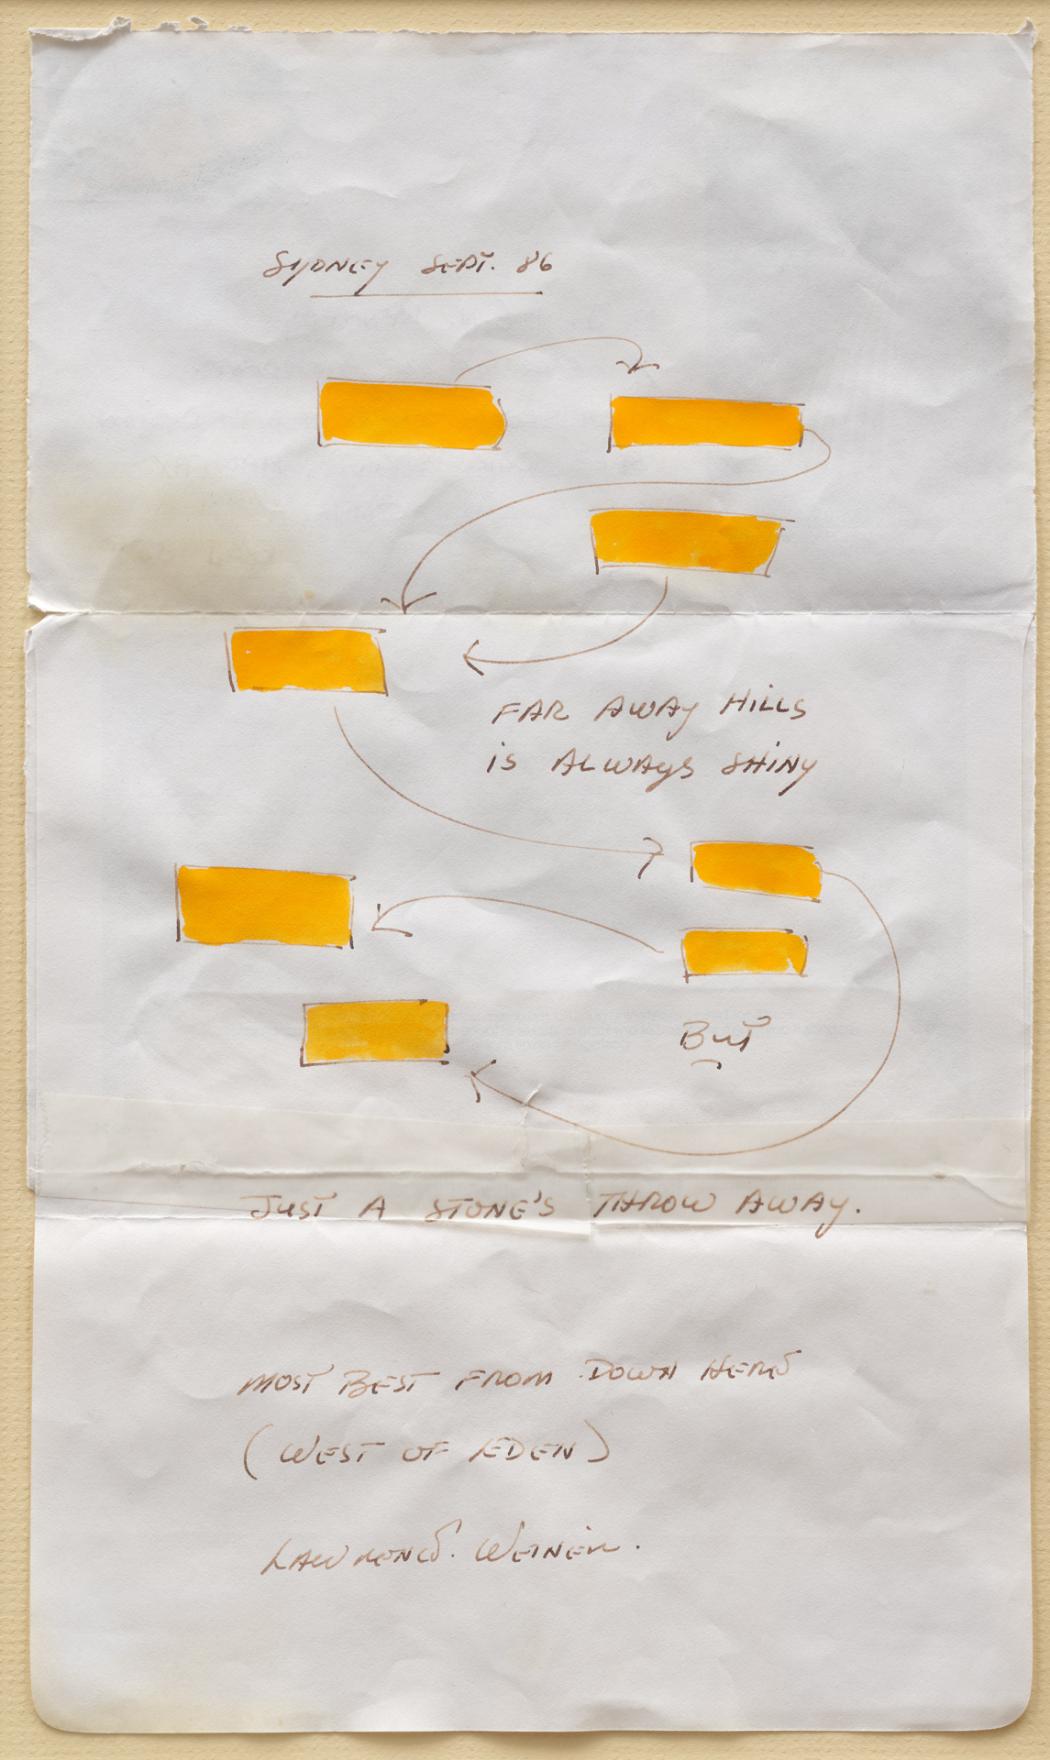 SYDNEY SEPT. 86
FAR AWAY HILLS
is ALWAYS SHINY
BuT
JUST A STONE'S THROW AWAY.
MOST BEST FROM DOWN HERE
(WEST OF EDEN)
LAWRENCE. WEINER.